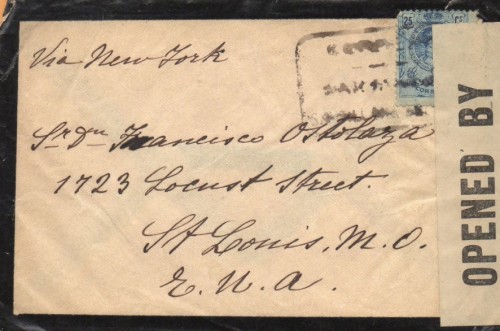 Via New York
Sr. Dn Francisco Ostolaza
1723 Locust Street.
St Louis, M.O.
E. U. A.
25 Cs
CORR
OPENED BY